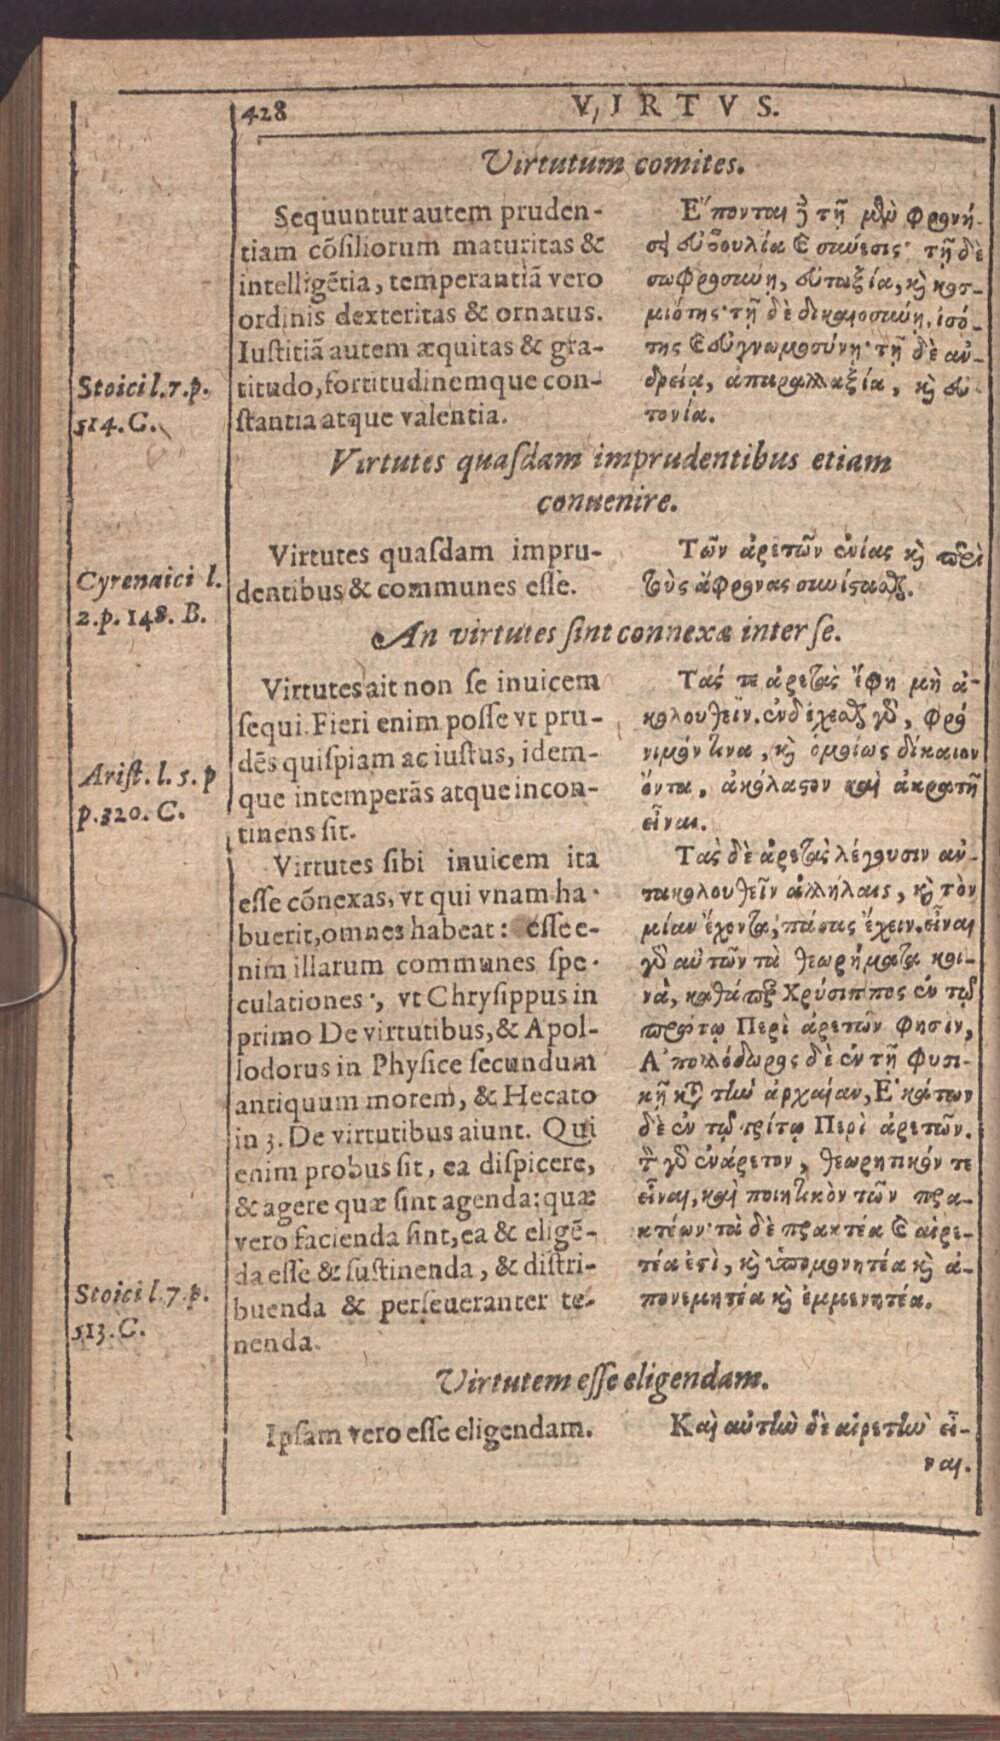 428
VIRTVS.
Virtutum comites.
Sequuntur autem pruden-
tiam cõſiliorum maturitas &
intelligẽtia, temperantiã vero
ordinis dexteritas & ornatus.
Iuſtitiã autem æquitas & gra-
titudo, fortitudinemque con-
ſtantia atque valentia.
Stoici l. 7. p.
514. C.
Ἕπονται ȝ τῇ μὲν φρονή-
σει εὐβουλία & σύνεσις· τῇ δὲ
σωφροσύνῃ, εὐταξία, κὶ κοσ-
μιότης· τῇ δὲ δικαιοσύνῃ, ἰσό-
της & εὐγνωμοσύνη· τῇ δὲ ἀν-
δρείᾳ, ἀπαραλλαξία, κὶ εὐ-
τονία.
Virtutes quaſdam imprudentibus etiam
conuenire.
Virtutes quaſdam impru-
dentibus & communes eſſe.
Cyrenaici l.
2. p. 148. B.
Τῶν ἀρετῶν ἐνίας κὶ περὶ
τοὺς ἄφρονας συνίςαϑ.
An virtutes ſint connexæ inter ſe.
Virtutes ait non ſe inuicem
ſequi. Fieri enim poſſe vt pru-
dẽs quiſpiam ac iuſtus, idem-
que intemperãs atque incon-
tinens ſit.
Ariſt. l. 5. p
p. 320. C.
Τάς τε ἀρετὰς ἔφη μὴ ἀ-
κολουθεῖν. ἐνδέχεαϑ γδ, φρό
νιμόν τινα, κὶ ὁμοίως δίκαιον
ὄντα, ἀκόλαςον καὶ ἀκρατῆ
εἶναι.
Virtutes ſibi inuicem ita
eſſe cõnexas, vt qui vnam ha-
buerit, omnes habeat: eſſe e-
nim illarum communes ſpe-
culationes, vt Chryſippus in
primo De virtutibus, & Apol-
lodorus in Phyſice ſecundum
antiquum morem, & Hecato
in 3. De virtutibus aiunt. Qui
enim probus ſit, ea diſpicere,
& agere quæ ſint agenda: quæ
vero facienda ſint, ea & eligẽ-
da eſſe & ſuſtinenda, & diſtri-
buenda & perſeueranter te-
nenda.
Stoici l. 7. p.
513. C.
Τὰς δὲ ἀρετὰς λέγουσιν ἀν-
τακολουθεῖν ἀλλήλαις, κὶ τὸν
μίαν ἔχοντα, πάσας ἔχειν. εἶναι
γδ αὐτῶν τὰ θεωρήματα κοι-
νὰ, καθάπερ Χρύσιππος ἐν τῷ
πρώτῳ Περὶ ἀρετῶν φησὶν,
Ἀπολλόδωρος δὲ ἐν τῇ φυσι-
κῇ κτ τὴν ἀρχαίαν, Ἑκάτων
δὲ ἐν τῷ τρίτῳ Περὶ ἀρετῶν.
τ γδ ἐνάρετον, θεωρητικόν τε
εἶναι, καὶ ποιητικὸν τῶν πρα-
κτέων· τὰ δὲ πρακτέα & αἱρε-
τέα ἐςὶ, κὶ ὑπομονητέα κὶ ἀ-
πονεμητέα κὶ ἐμμενητέα.
Virtutem eſſe eligendam.
Ipſam vero eſſe eligendam.
Καὶ αὐτὴν δὲ αἱρετὴν εἶ-
ναι.